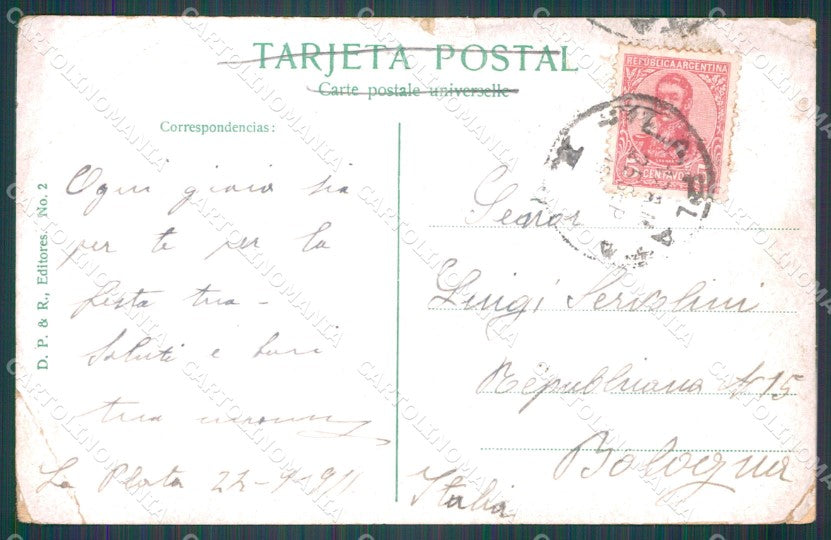 TARJETA POSTAL
Carte postale universelle
Correspondencias:
Ogni gioia sia
per te per la
festa tua -
Saluti e baci
tua
La Plata 22-4-911
D. P. & R., Editores. No. 2
REPUBLICA ARGENTINA
CENTAVOS
Señor
Luigi Servolini
Repubblicana N 15
Bologna
Italia
CARTOLINOMANIA